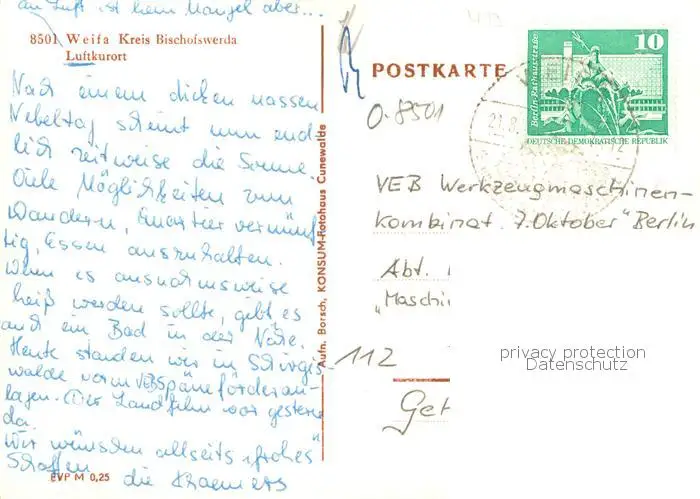 an Luft ist kein Mangel aber...
8501 Weifa Kreis Bischofswerda
Luftkurort
Nach einem dicken nassen
Nebeltag scheint nun end
lich zeitweise die Sonne.
Viele Möglichkeiten zum
Wandern, Quartier vernünf
tig, Essen auszuhalten.
Wenn es ausnahmsweise
heiß werden sollte, gibt es
auch ein Bad in der Nähe.
Heute standen wir in Schirgis-
walde vorm VEB Späneförderan-
lagen. (Der Landfilm war gestern
da.
Wir wünschen allseits "frohes"
Schaffen
die
EVP M 0,25
Aufn. Borsch, KONSUM-Fotohaus Cunewalde
POSTKARTE
O-8501
Berlin-Rathausstraße
10
DEUTSCHE DEMOKRATISCHE REPUBLIK
VEB Werkzeugmaschinen-
kombinat "7. Oktober" Berlin
Abt.
"Maschi
112
privacy protection
Datenschutz